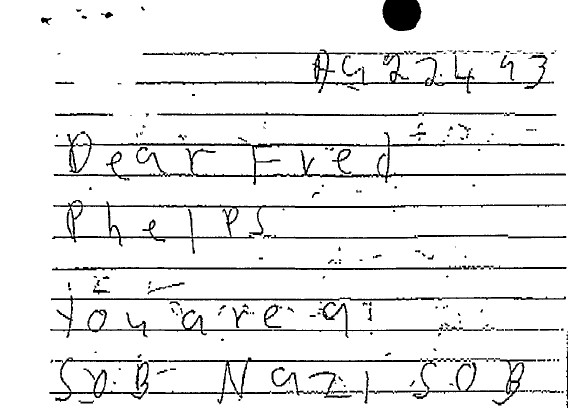 Aq 22493
Dear Fred
Phelps
You are a
SOB Nazi SOB